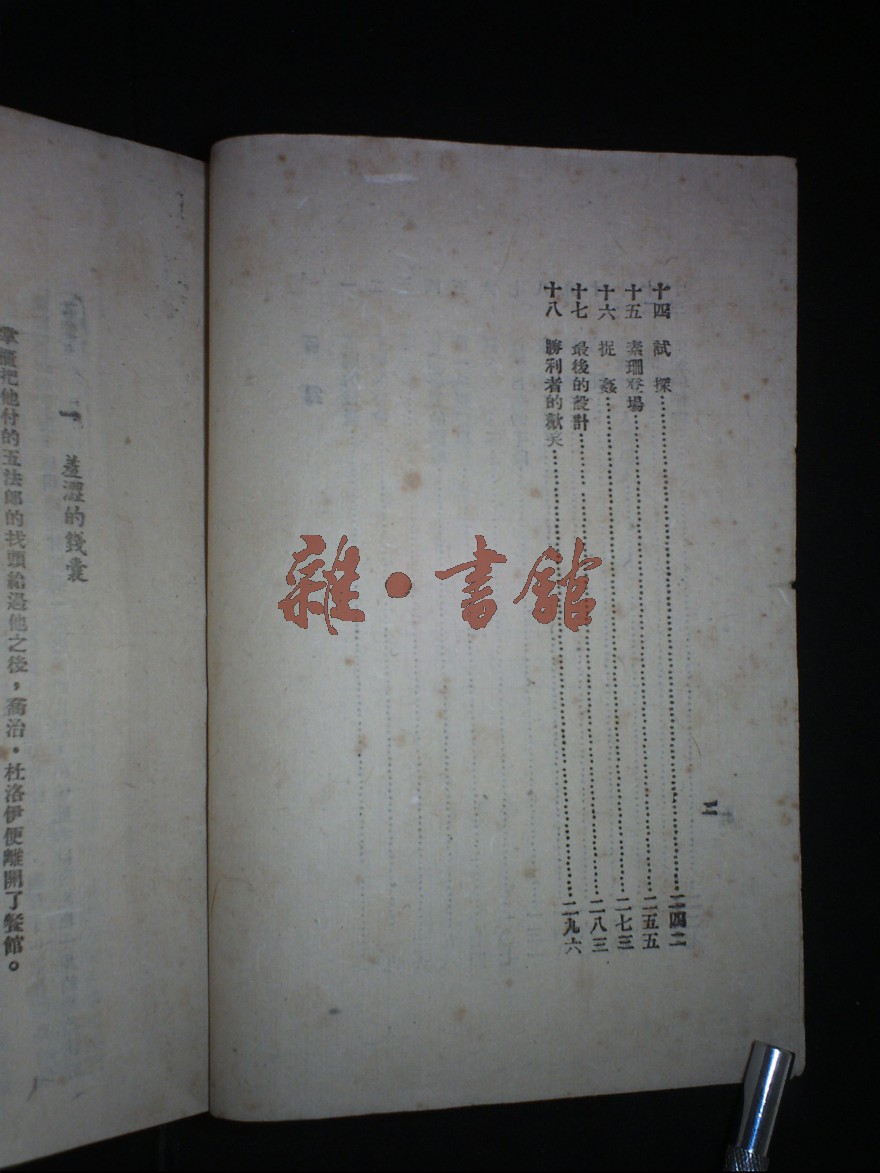 十四 試探 二四二
十五 素珊登場 二五五
十六 捉姦 二七三
十七 最後的設計 二八三
十八 勝利者的歡笑 二九六
二
雜·書館
一 羞澀的錢囊
掌櫃把他付的五法郎的找頭給過他之後,喬治·杜洛伊便離開了餐館。